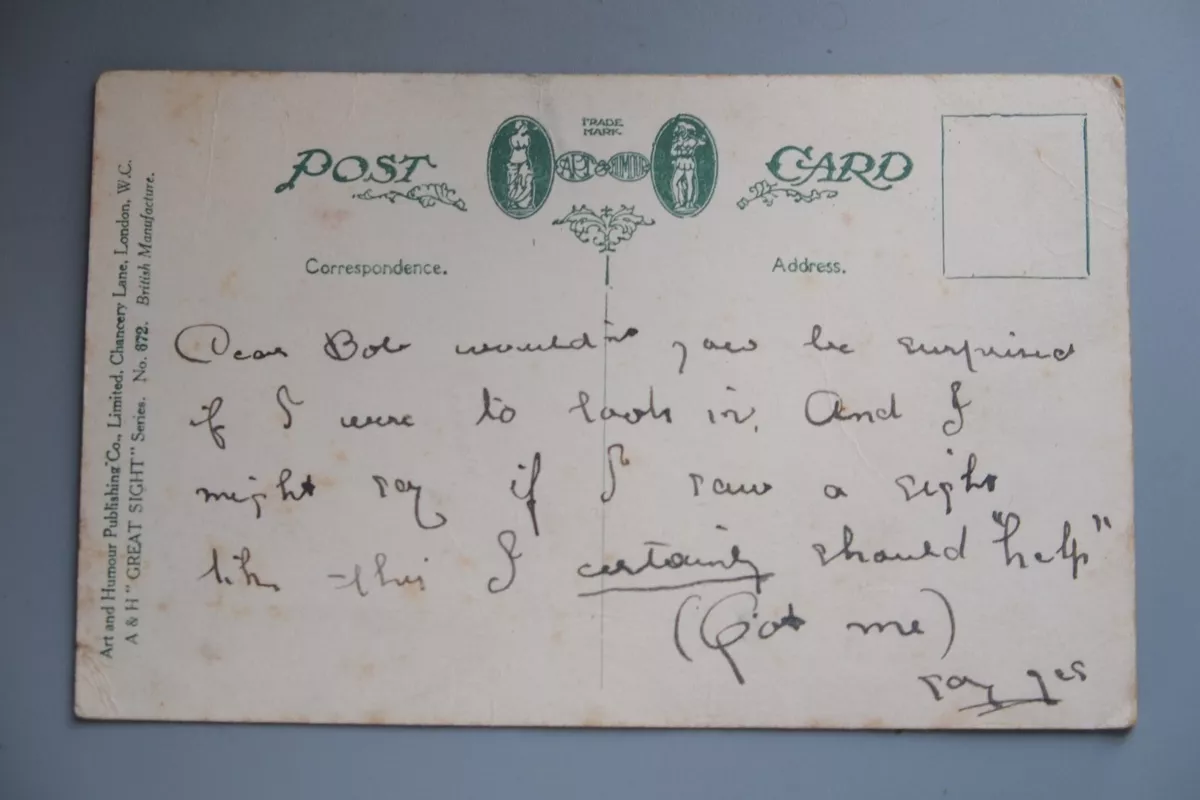 POST CARD
TRADE
MARK.
ART & HUMOUR
Correspondence.
Address.
Art and Humour Publishing Co., Limited, Chancery Lane, London, W.C.
A & H "GREAT SIGHT" Series. No. 872. British Manufacture.
Dear Bob wouldnt you be surprised
if I were to look in. And I
might say if I saw a sight
like this I certainly should "help"
(Got me)
say yes